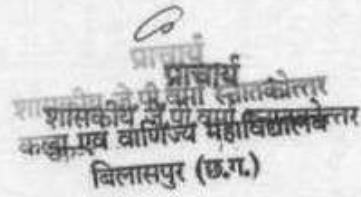 प्राचार्य
प्राचार्य
शासकीय जे.पी.वर्मा स्नातकोत्तर
कला एवं वाणिज्य महाविद्यालय
बिलासपुर (छ.ग.)